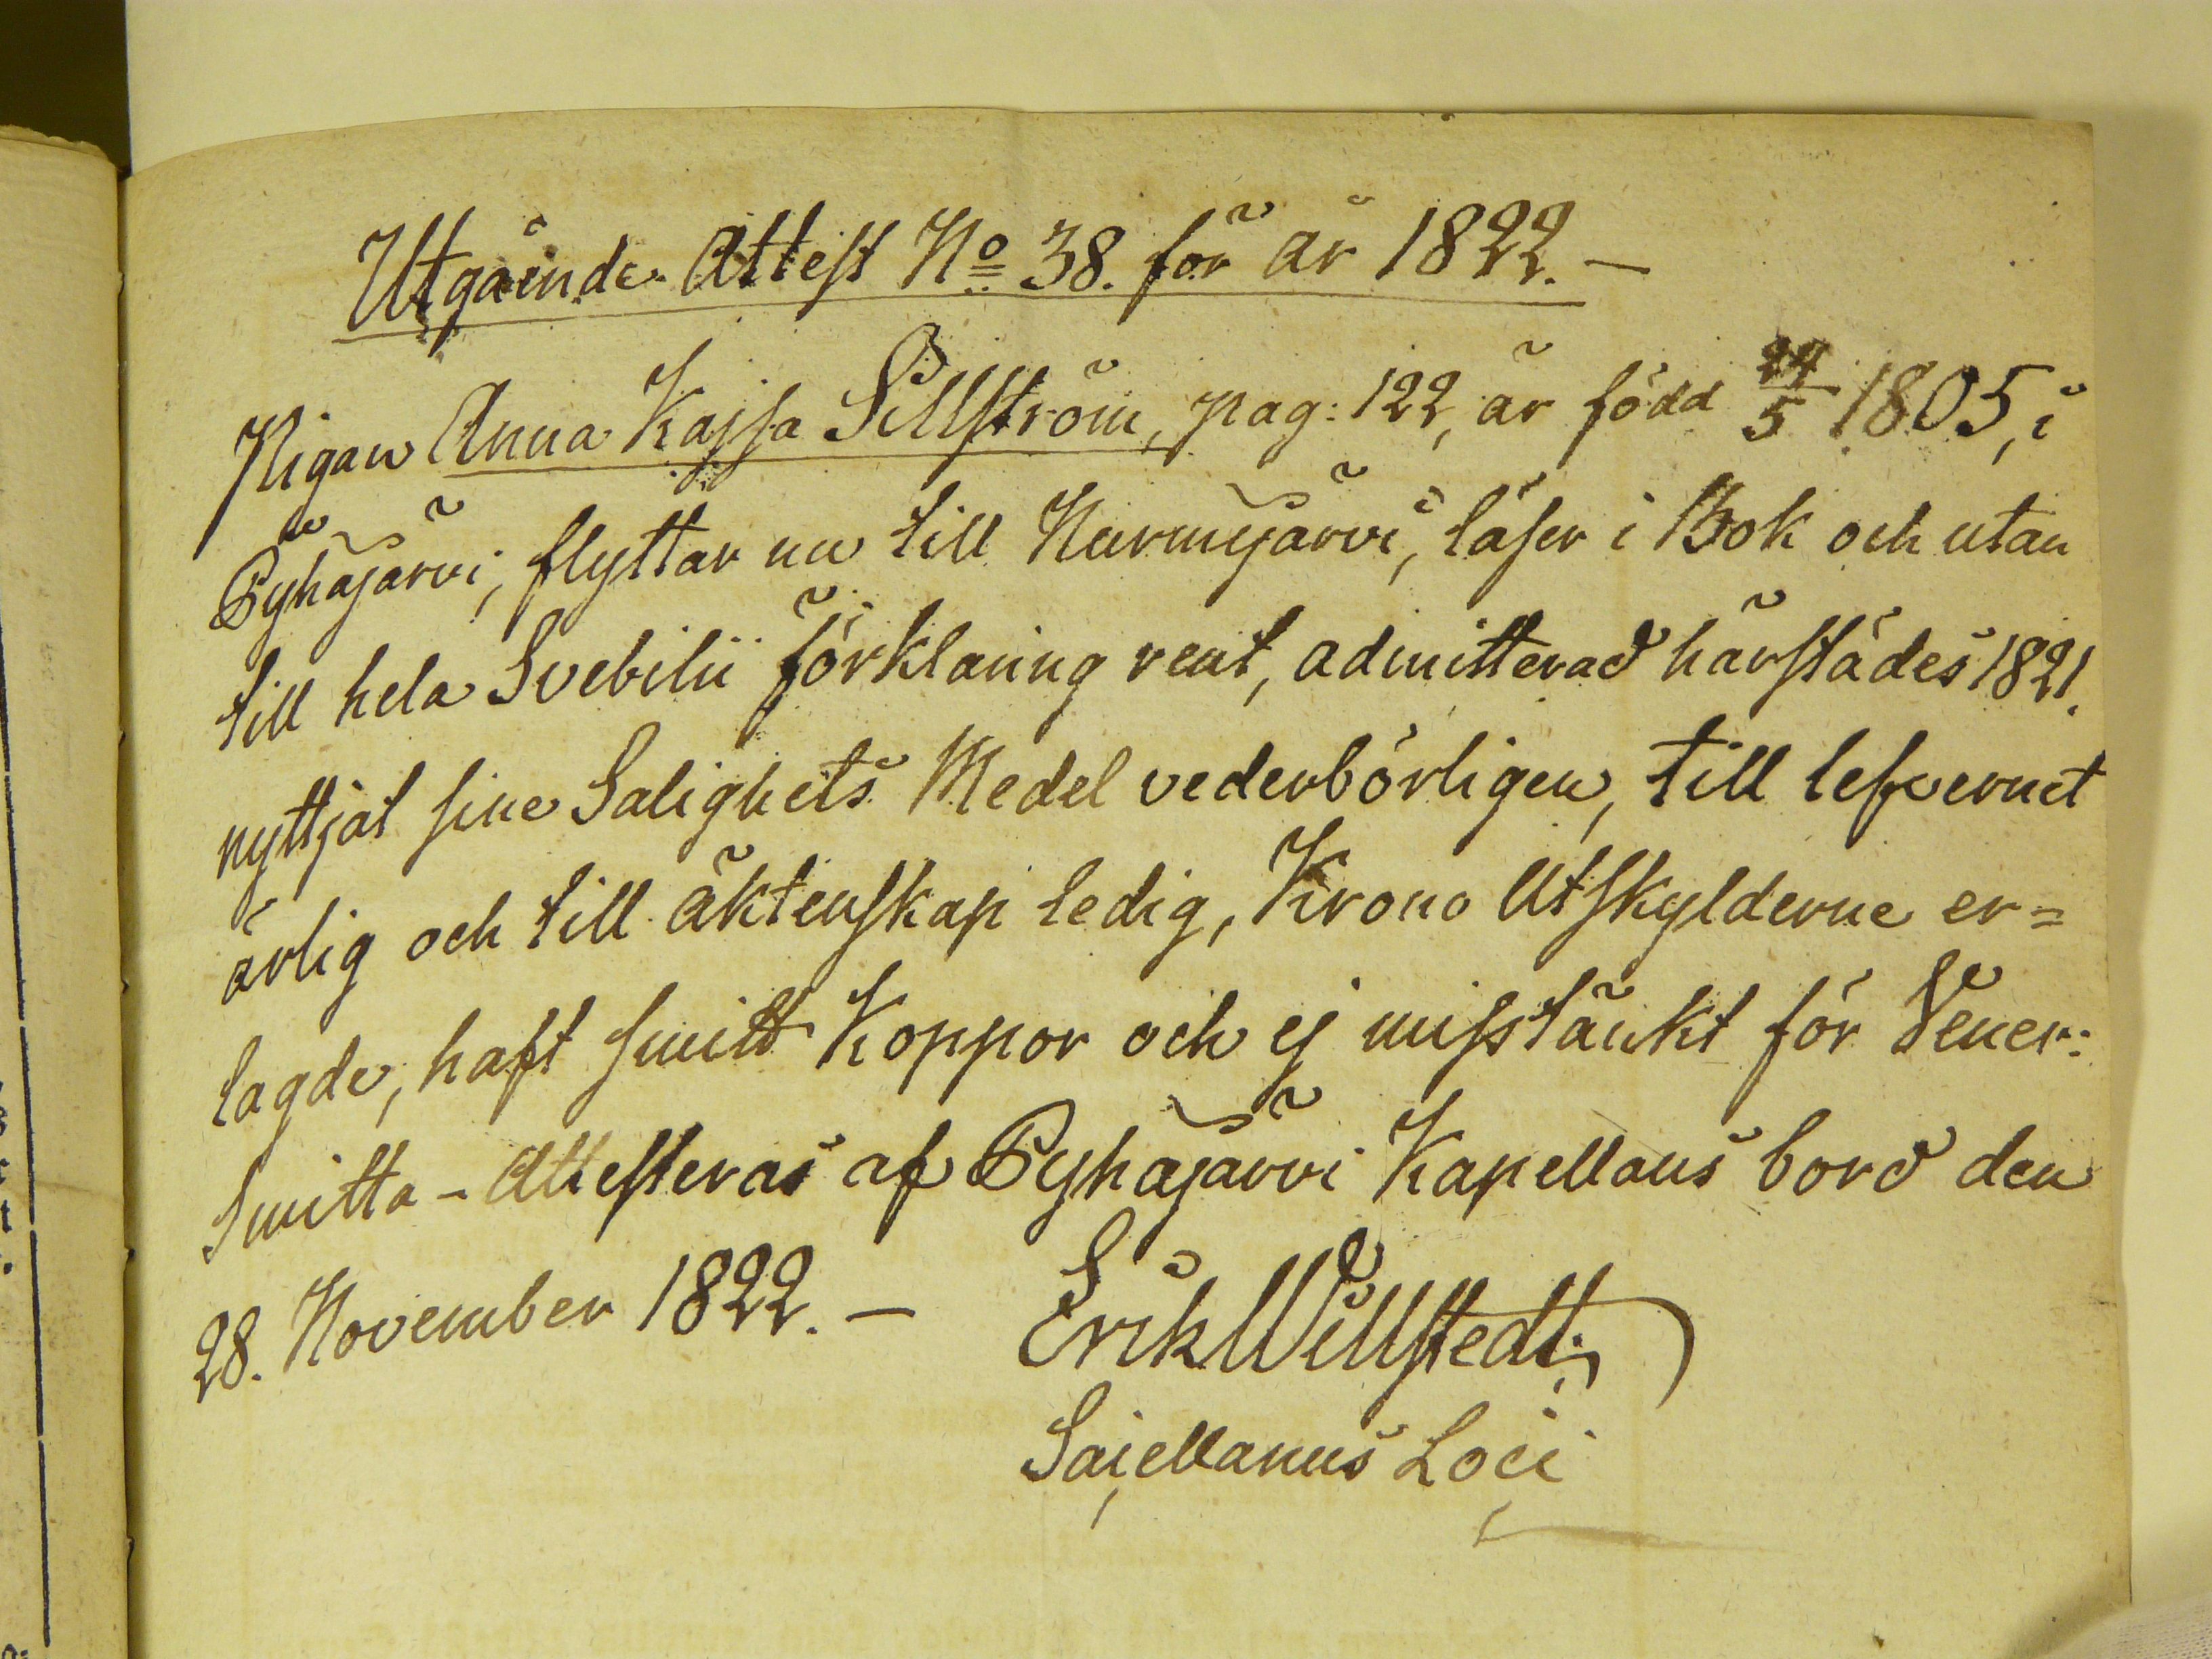 Utgående Attest No 38. för år 1822. —
Pigan Anna Kajsa Sillström, pag: 122, är född 24/5 1805, i
Pyhäjärvi, flyttar nu till Nurmijärvi, läser i Bok och utan
till hela Svebilii förklaring rent, admitterad härstädes 1821.
nyttjat sine Salighets Medel vederbörligen, till lefvernet
ärlig och till äktenskap ledig, Krono Utskylderne er=
lagde, haft smitt Koppor och ej misstänkt för Vener:
Smitta - Attesteras af Pyhäjärvi Kapellans bord den
28. November 1822. — Erik Willstedt
Sacellanus Loci